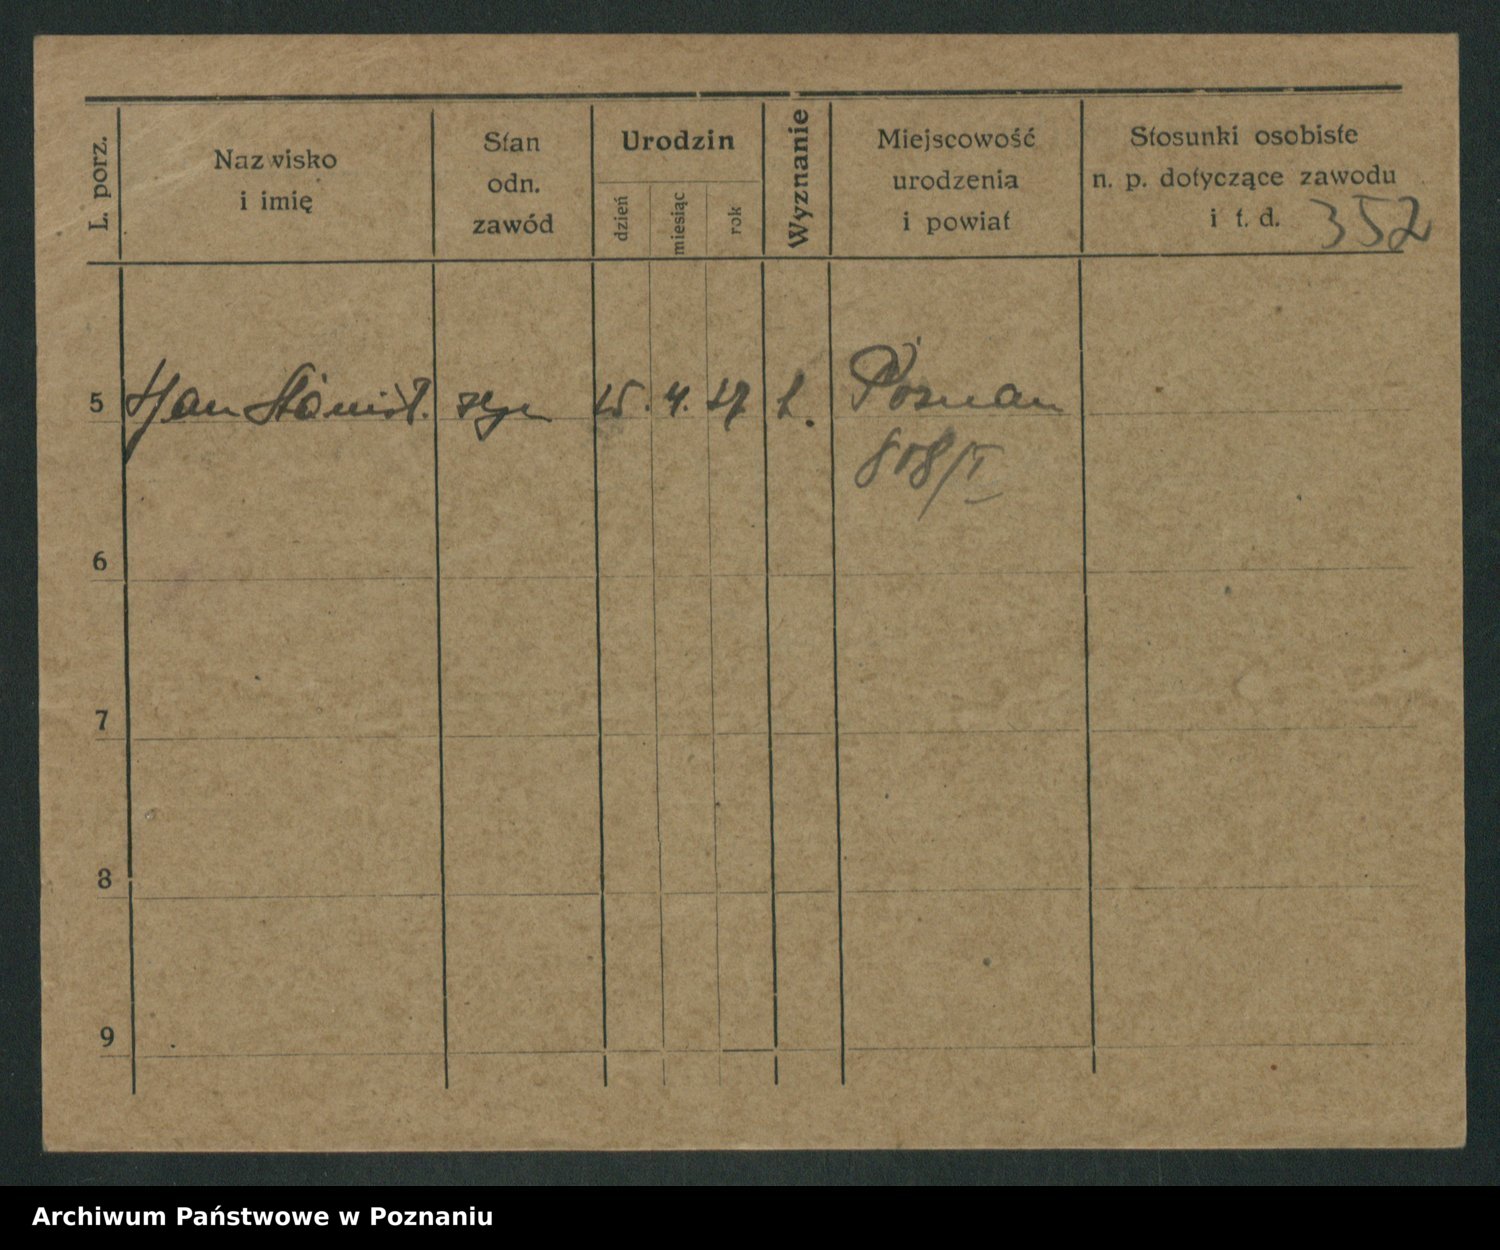 L. porz.
Nazwisko
i imię
Stan
odn.
zawód
Urodzin
dzień
miesiąc
rok
Wyznanie
Miejscowość
urodzenia
i powiat
Stosunki osobiste
n. p. dotyczące zawodu
i t. d. 352
5 Jan Stanisł. syn 15. 4. 27 Poznań
6
7
8
9
Archiwum Państwowe w Poznaniu